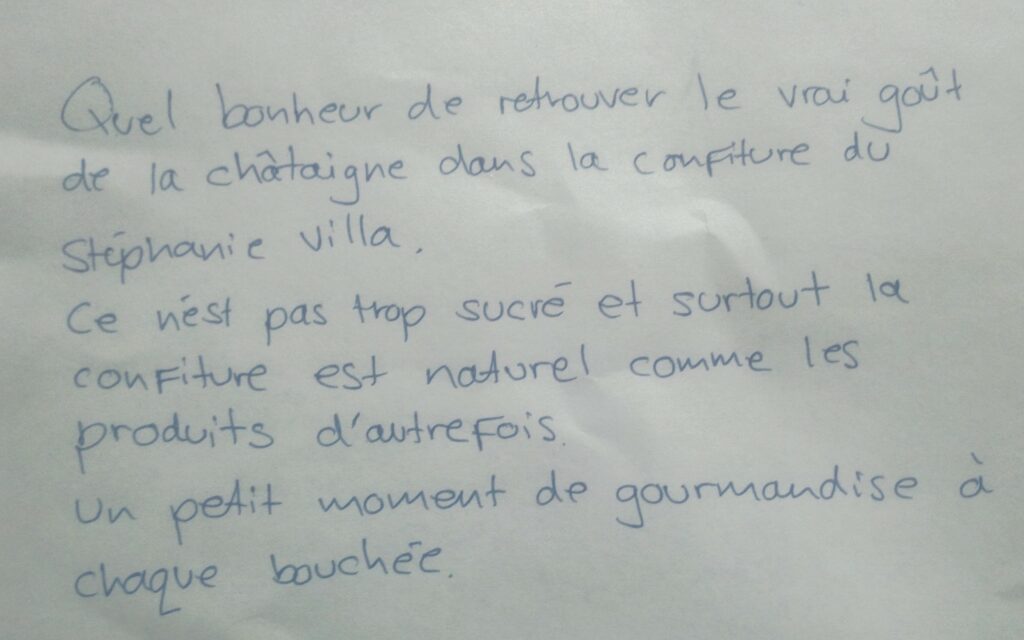 Quel bonheur de retrouver le vrai goût
de la châtaigne dans la confiture du
Stéphanie Villa.
Ce n'est pas trop sucré et surtout la
confiture est naturel comme les
produits d'autrefois.
Un petit moment de gourmandise à
chaque bouchée.